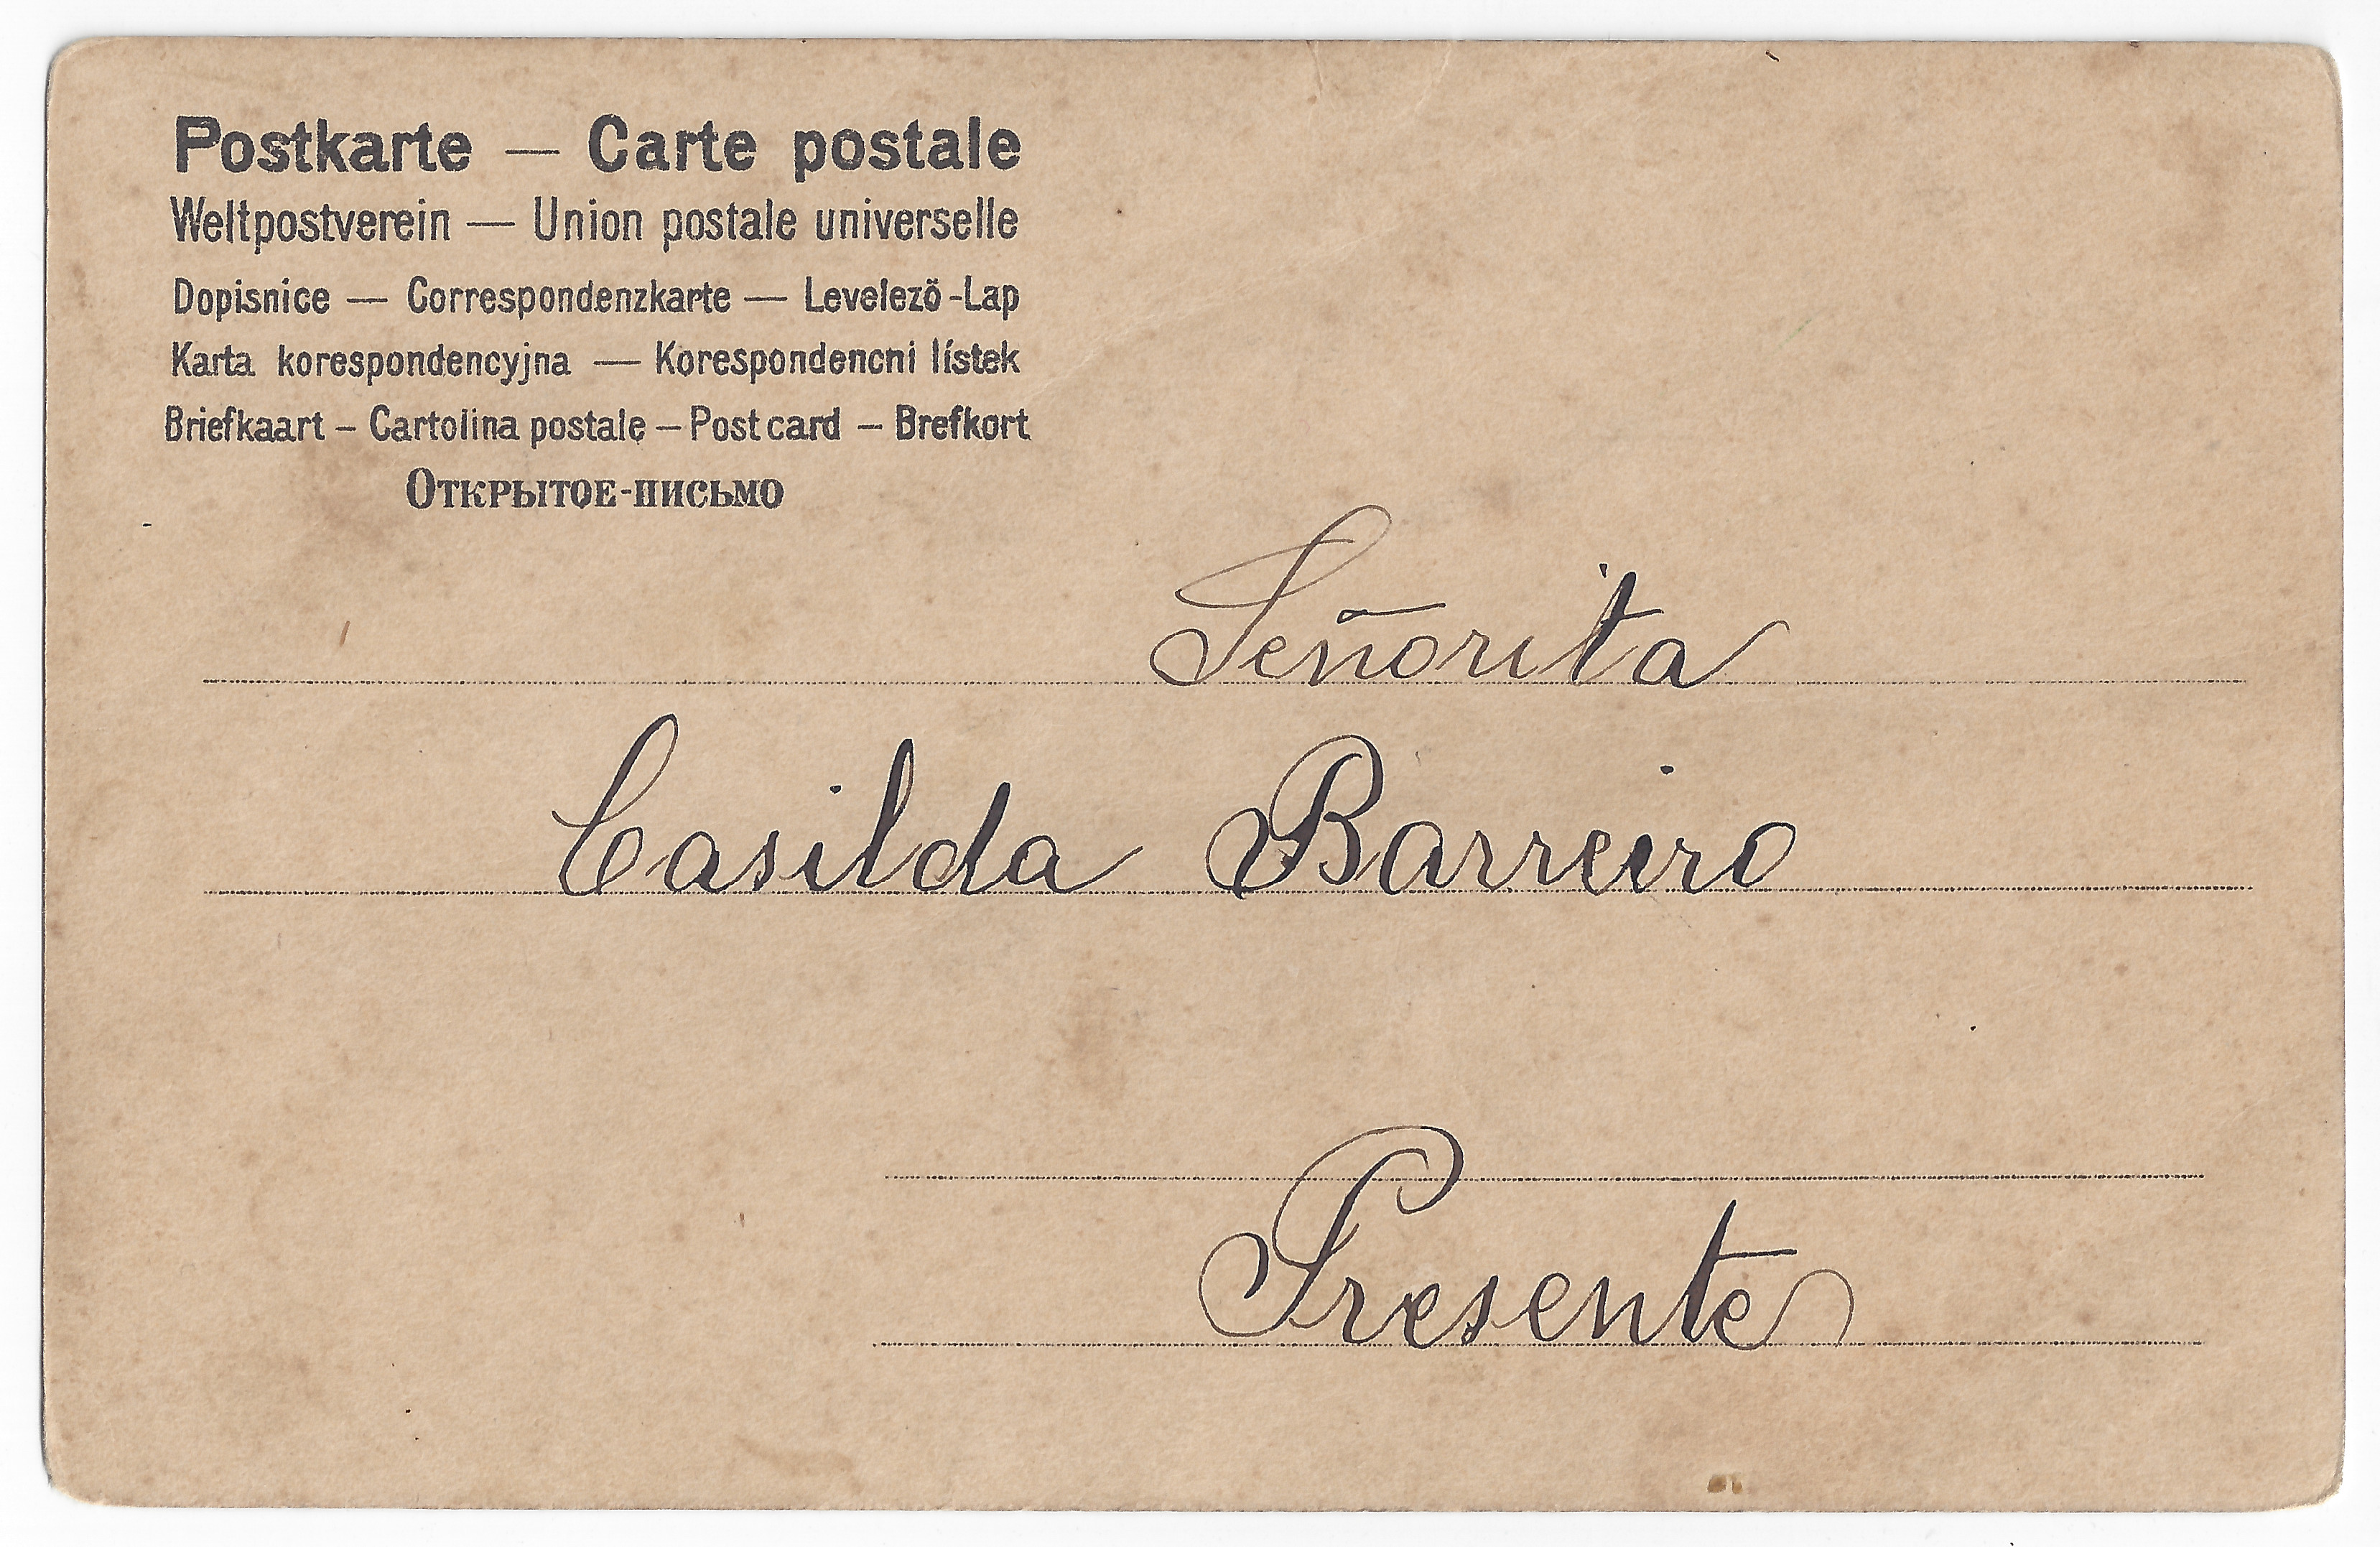 Postkarte — Carte postale
Weltpostverein — Union postale universelle
Dopisnice — Correspondenzkarte — Levelező-Lap
Karta korespondencyjna — Korespondencni lístek
Briefkaart – Cartolina postale – Post card – Brefkort
Открытое-письмо
Señorita
Casilda Barreiro
Presente